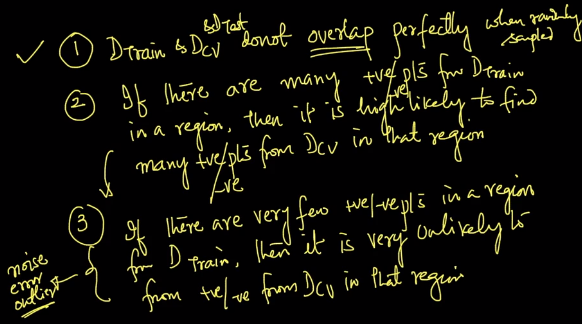 & DTest
✓ ① DTrain & DCV donot overlap perfectly when randomly sampled
② If there are many +ve/-ve pts from DTrain
in a region, then it is highly likely to find
many +ve/-ve pts from DCV in that region
③ If there are very few +ve/-ve pts in a region
from DTrain, then it is very unlikely to
from +ve/-ve from DCV in that region
noise
error
outlier